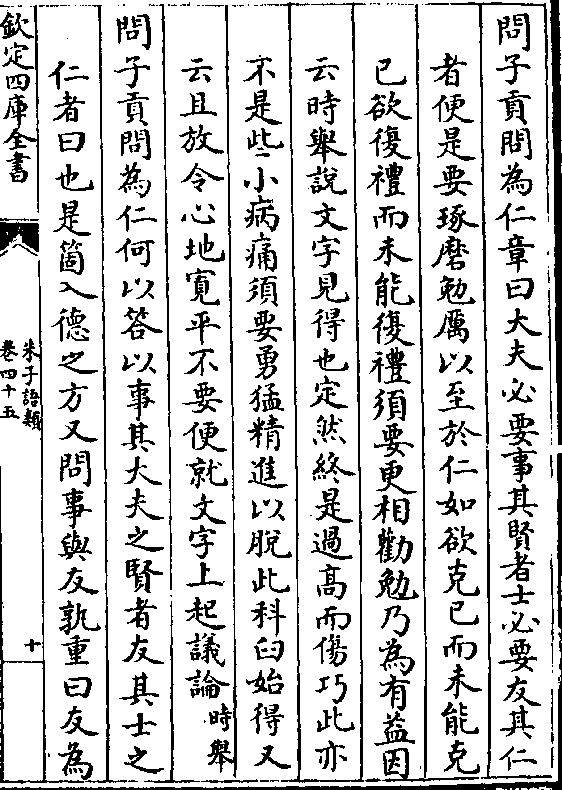 問子貢問為仁章曰大夫必要事其賢者士必要友其仁
者便是要琢磨勉厲以至於仁如欲克已而未能克
已欲復禮而未能復禮須要更相勸勉乃為有益因
云時舉說文字見得也定然終是過高而傷巧此亦
不是些小病痛須要勇猛精進以脫此科臼始得又
云且放令心地寛平不要便就文字上起議論時舉
問子貢問為仁何以答以事其大夫之賢者友其士之
仁者曰也是箇入德之方又問事與友孰重曰友為
欽定四庫全書
朱子語類
卷四十五
十